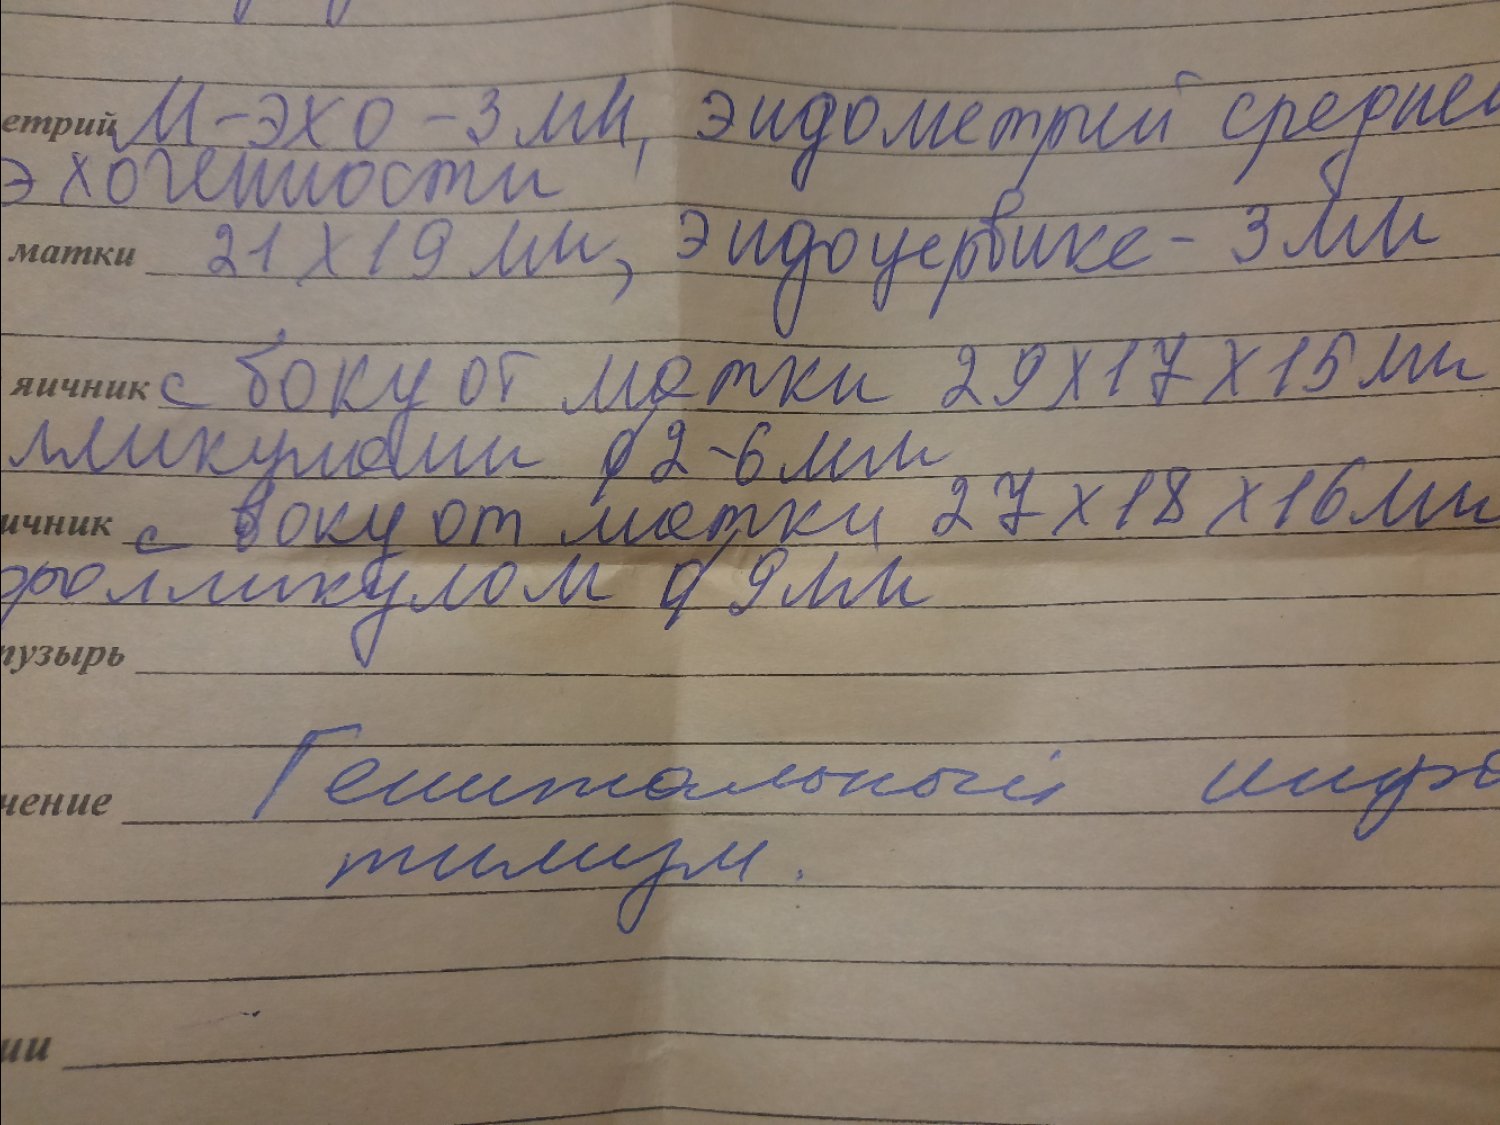 етрий М-эхо-3мм, эндометрий средней
эхогенности
матки 21х19мм, эндоцервикс-3мм
яичник с боку от матки 29х17х15мм
лликулами d 2-6мм
ичник с боку от матки 27х18х16мм
фолликулом d 9мм
пузырь
чение Генитальный инфа
тилизм.
ии